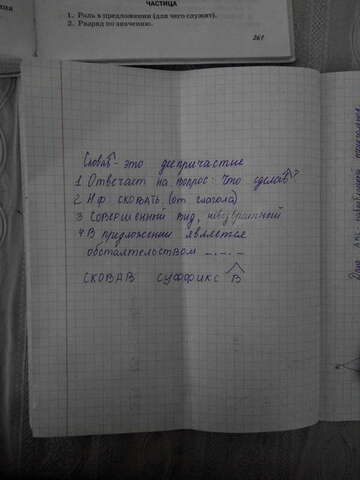 ЧАСТИЦА
1. Роль в предложении (для чего служит).
2. Разряд по значению.
261
Сковав - это деепричастие
1 Отвечает на вопрос: Что сделав?
2 Н.Ф. СКОВАТЬ (от глагола)
3 СОВЕРШЕННЫЙ вид, невозвратный
4. В предложении является
обстоятельством _._._
СКОВАВ СУФФИКС В